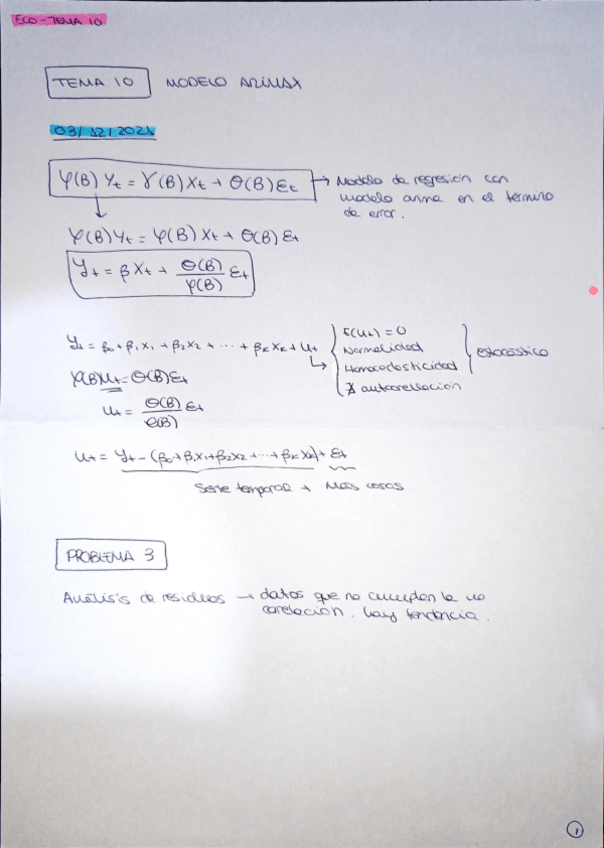 ECO - TEMA 10
TEMA 10 MODELO ARIMAX
03/12/2021
φ(B) Yt = γ(B) Xt + Θ(B) Et → Modelo de regresión con
modelo arma en el término
de error.
φ(B) Yt = φ(B) Xt + Θ(B) Et
Yt = β Xt + Θ(B)/φ(B) Et
Yt = β0 + β1 X1 + β2 X2 + ... + βk Xk + Ut
E(Ut) = 0
Normalidad
Homocedasticidad
∄ autocorrelación
estocástico
φ(B) Ut = Θ(B) Et
Ut = Θ(B)/φ(B) Et
Ut = Yt - (β0 + β1 X1 + β2 X2 + ... + βk Xk) + Et
Serie temporal + Más cosas
PROBLEMA 3
Análisis de residuos → datos que no cumplen la no
correlación. hay tendencia.
1